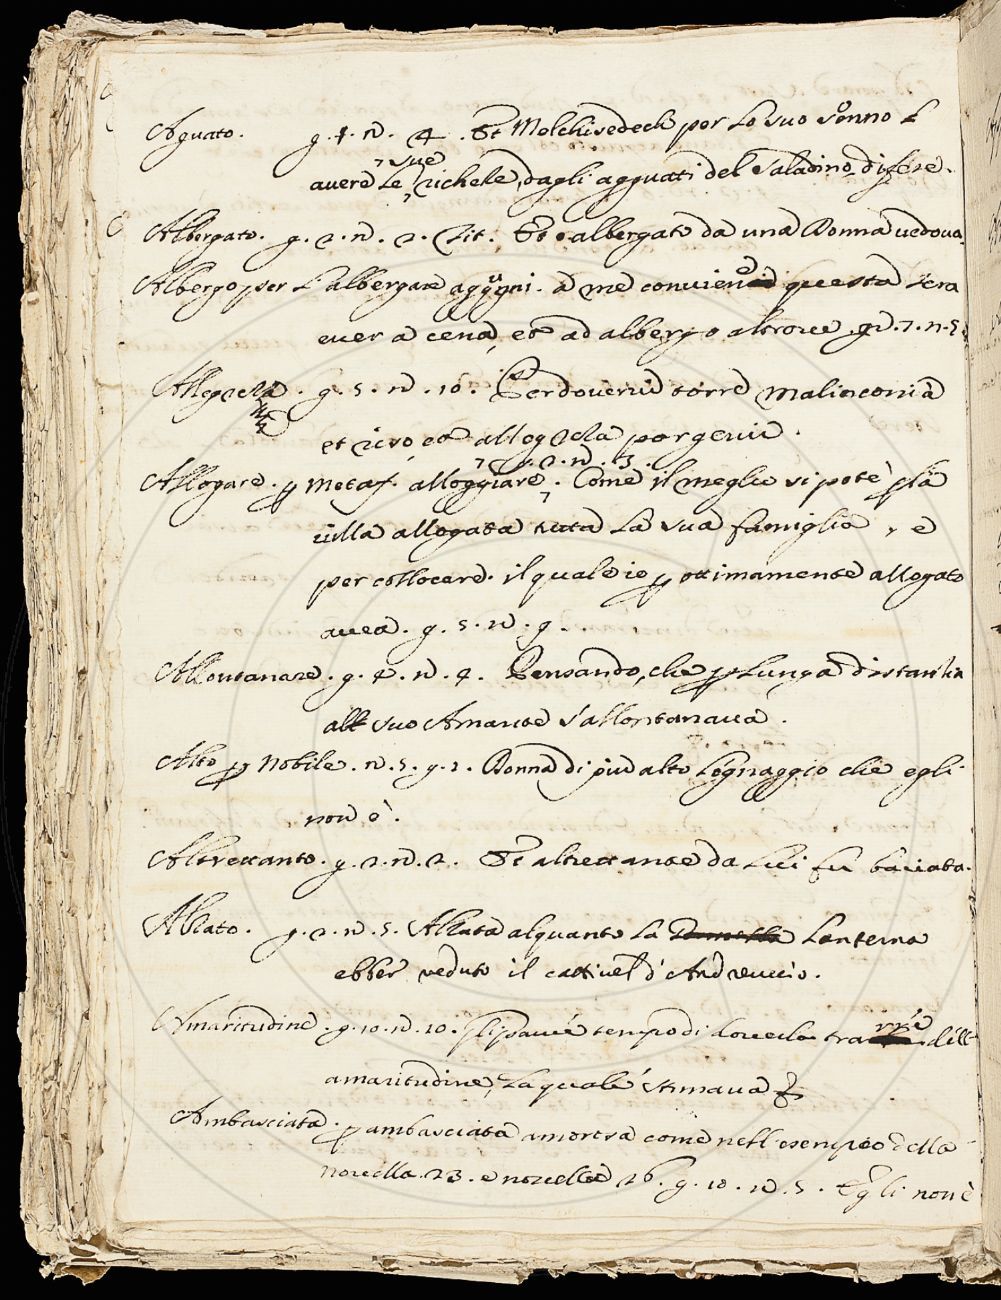 Aguato. g. 1. n. 4. Et Melchisedech per lo suo sonno l
avere le sue richeze, dagli agguati del Saladino difese.
Albergato. g. 2. n. 2. tit. Et è albergato da una Donna vedova.
Albergo per l'albergare a me conviene questa sera
aver a cena, et ad albergo altrove. g. 7. n. 5.
Allegreza. g. 5. n. 10. Per doverui torre malinconia
et riso, et allegreza porgerui.
Allogare. p Metaf. alloggiare. g. 2. n. 3. Come il meglio si potè p la
uilla allogata tutta la sua famiglia, e
per collocare. il quale io ottimamente allogato
avea. g. 5. n. 9.
Allontanare. g. 4. n. 4. Pensando, che p lunga distantia
al suo Amante s'allontanava.
Alto p Nobile. n. 5. g. 2. Donna di più alto legnaggio che egli
non è.
Altrettanto. g. 2. n. 2. Et altrettante da lui fu baciata.
Alzato. g. 2. n. 5. Alzata alquanto la Lanterna
ebber veduto il cattivel d'Andreuccio.
Amaritudine. g. 10. n. 10. gli parve tempo di doverla trarre dell
amaritudine, la quale stimava &
Ambasciata. p ambasciata amorosa come nell esempio della
novella 23. e novella 26. g. 10. n. 5. Egli non è